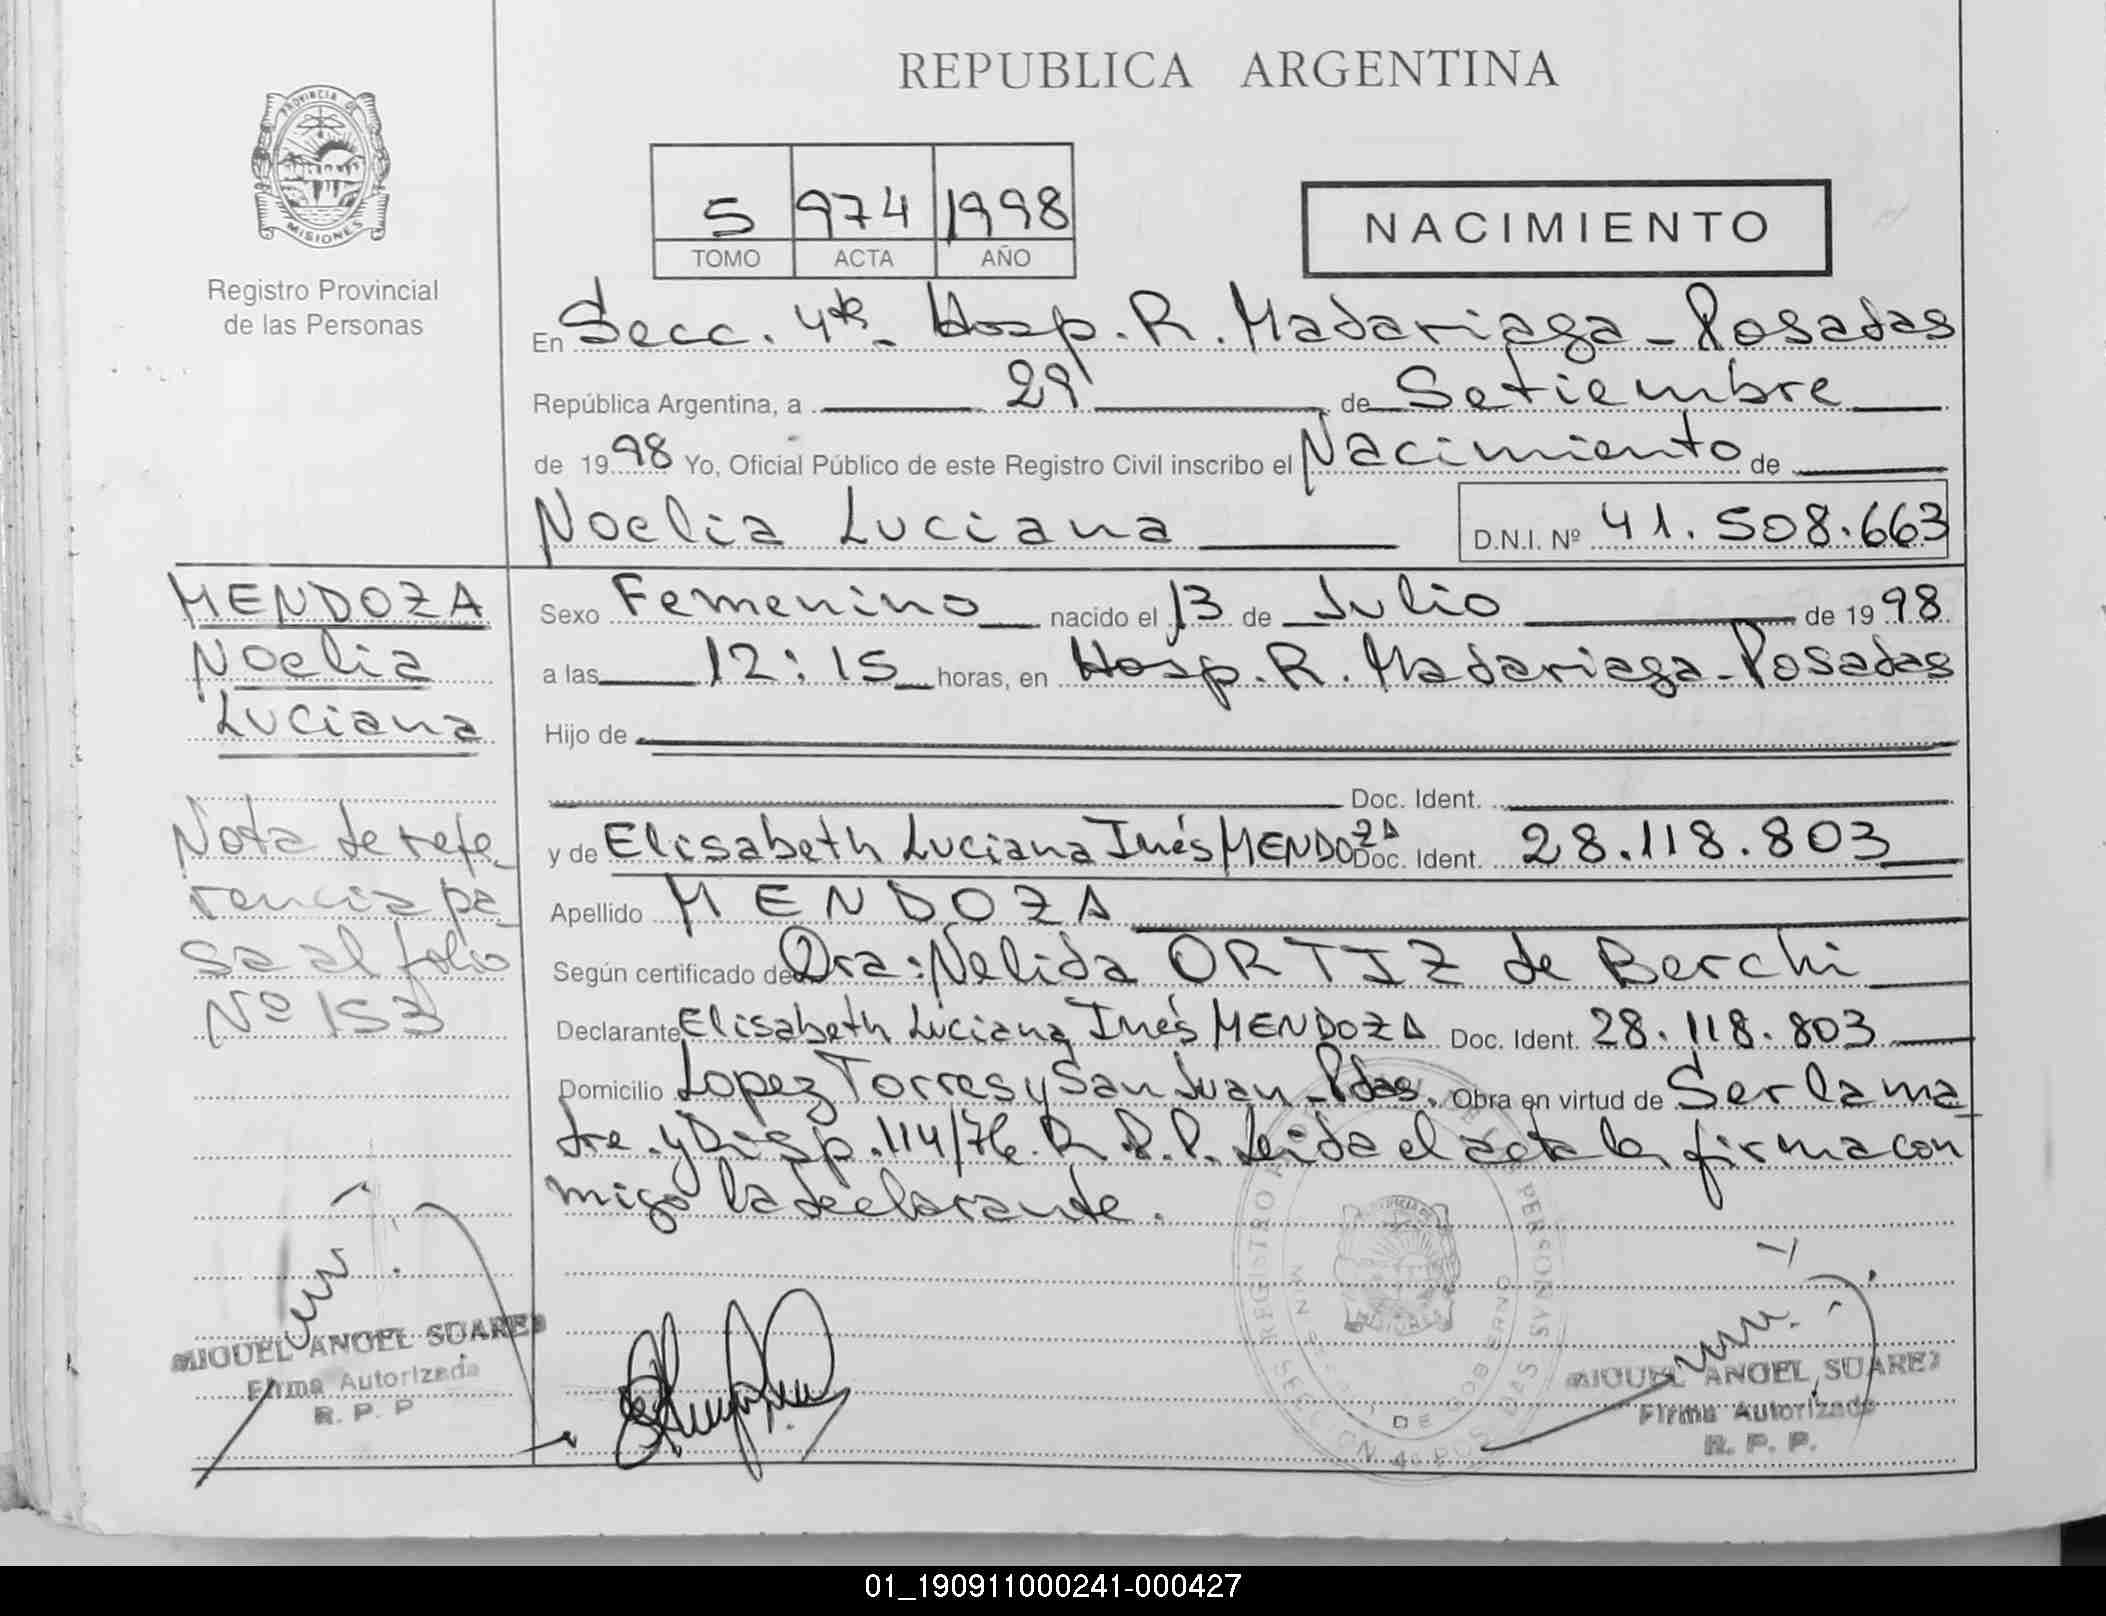 REPUBLICA ARGENTINA
PROVINCIA DE
MISIONES
Registro Provincial
de las Personas
5 974 1998
TOMO ACTA AÑO
NACIMIENTO
En Secc. 4ta. Hosp. R. Madariaga - Posadas
República Argentina, a 29 de Setiembre
de 1998 Yo, Oficial Público de este Registro Civil inscribo el Nacimiento de
Noelia Luciana D.N.I. Nº 41.508.663
MENDOZA
Noelia
Luciana
Nota de refe-
rencia pa-
sa al folio
Nº 153
Sexo Femenino nacido el 13 de Julio de 1998
a las 12:15 horas, en Hosp. R. Madariaga - Posadas
Hijo de
Doc. Ident.
y de Elisabeth Luciana Inés MENDOZA Doc. Ident. 28.118.803
Apellido MENDOZA
Según certificado de Dra: Nelida ORTIZ de Berchi
Declarante Elisabeth Luciana Inés MENDOZA Doc. Ident. 28.118.803
Domicilio Lopez Torres y San Juan - Pdas. Obra en virtud de Ser la ma-
dre. y Disp. 114/76. R.P.P. Leida el acta la firma con
migo la declarante.
MIGUEL ANGEL SUAREZ
Firma Autorizada
R. P. P.
MIGUEL ANGEL SUAREZ
Firma Autorizada
R. P. P.
01_190911000241-000427